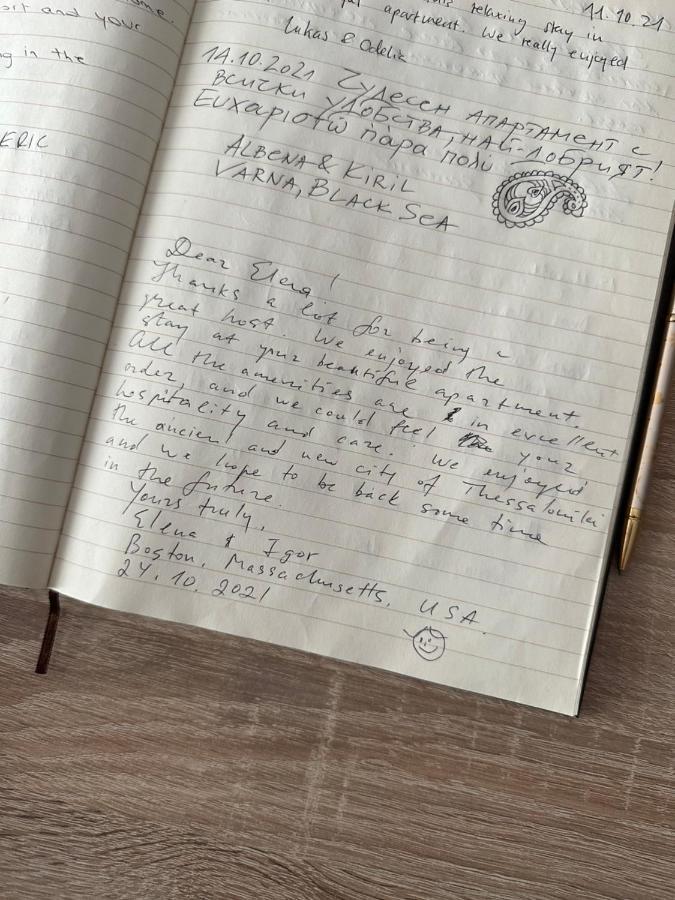 ort and your
ng in the
ERIC
11.10.21
relaxing stay in
apartment. We really enjoyed
Lukas & Odelia
14.10.2021 Чудесен апартамент с
всички удобства, най-добрият!
Ευχαριστώ πάρα πολύ
ALBENA & KIRIL
VARNA, BLACK SEA
Dear Elena!
Thanks a lot for being a
great host. We enjoyed the
stay at your beautiful apartment.
All the amenities are in excellent
order, and we could feel your
hospitality and care. We enjoyed
the ancient and new city of Thessaloniki
and we hope to be back some time
in the future.
Yours truly,
Elena & Igor
Boston, Massachusetts, USA.
24.10.2021